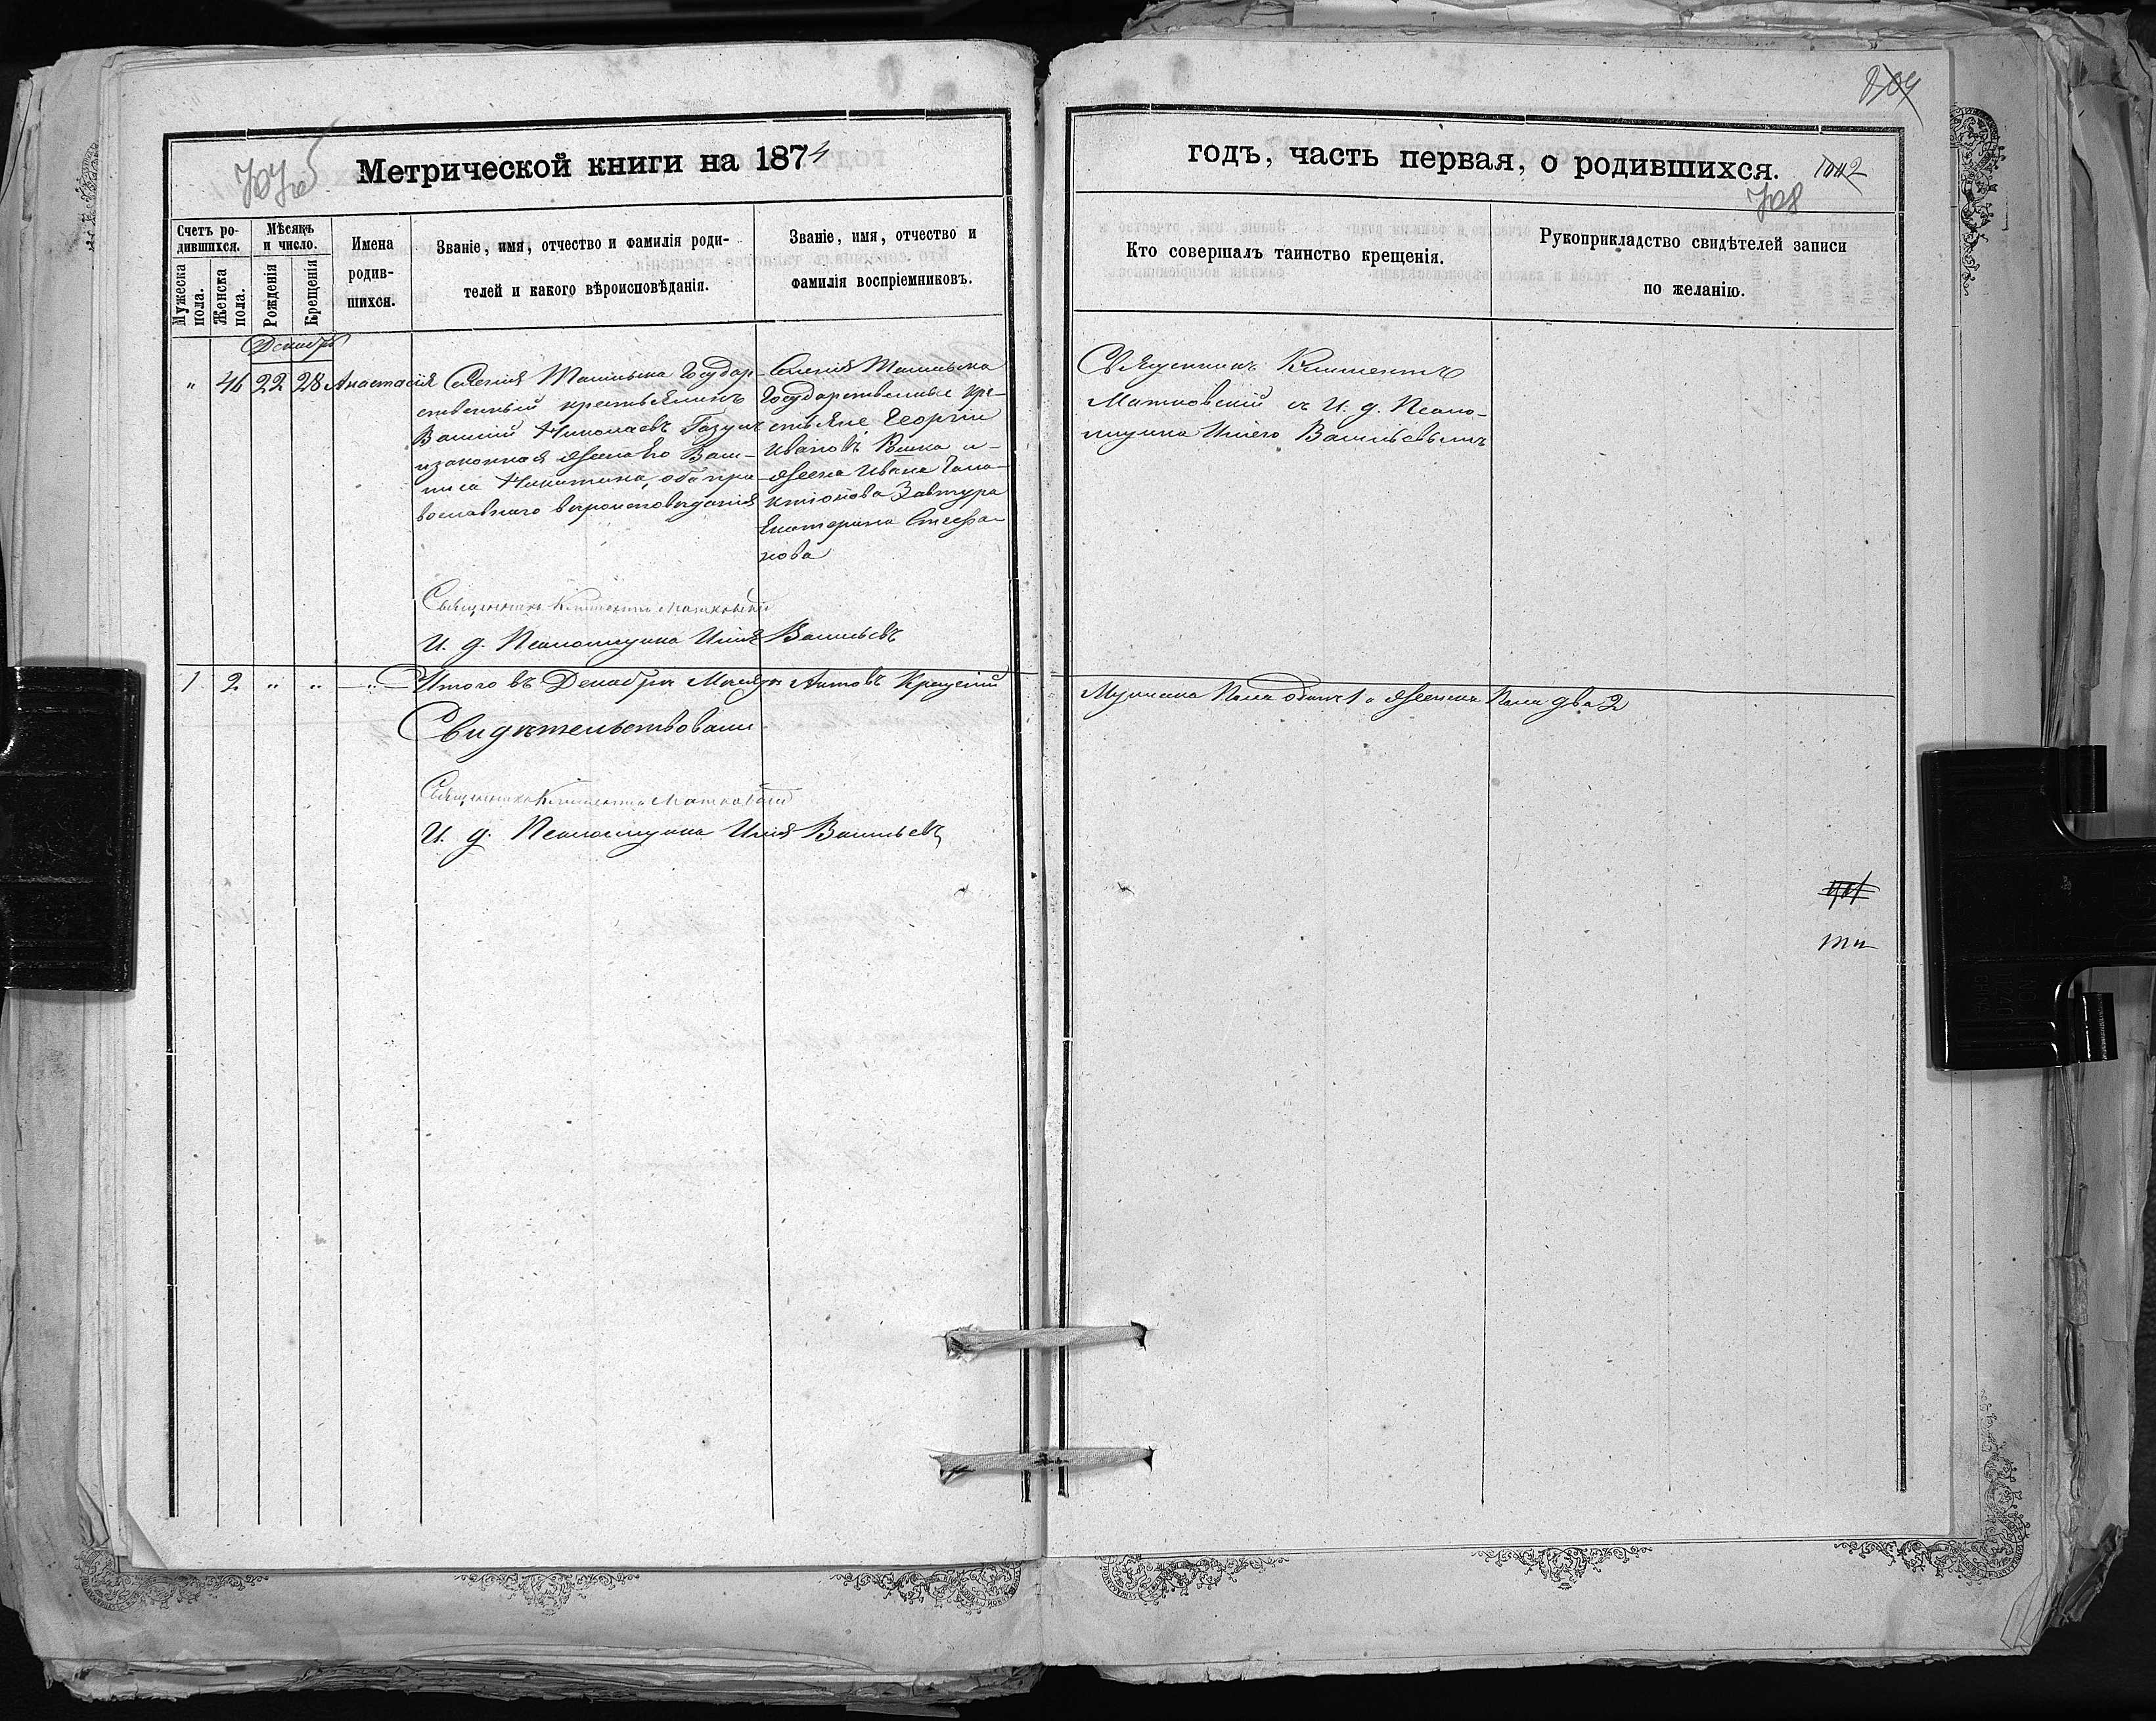 Метрической книги на 1874
Счетъ ро-
дившихся.
Мужеска
пола.
Женска
пола.
Мѣсяцъ
и число.
Рожденія
Крещенія
Имена
родив-
шихся.
Званіе, имя, отчество и фамилія роди-
телей и какого вѣроисповѣданія.
Званіе, имя, отчество и
фамилія воспріемниковъ.
Декабрь
" 46 22 28 Анастасія
Селенія Ташлыка Государ-
ственный крестьянинъ
Василій Николаевъ
и законная жена его Васи-
лиса Никитина, оба пра-
вославнаго вѣроисповѣданія
Селенія Ташлыка
Государственные кре-
стьяне Георгій
Ивановъ и
жена Ивана
Завтура
Екатерина Стефа-
нова
Священникъ Климентъ Матковскій
И. д. Псаломщика Илія Васильевъ
1 2 " " — " — Итого въ Декабрѣ Мѣсяцѣ Актовъ Крещеній
Свидѣтельствовали
Священникъ Климентъ Матковскій
И. д. Псаломщика Илія Васильевъ
годъ, часть первая, о родившихся.
708
Кто совершалъ таинство крещенія.
Рукоприкладство свидѣтелей записи
по желанію.
Священникъ Климентъ
Матковскій съ И. д. Псало-
мщика Иліею Васильевымъ
Мужеска Пола одинъ 1 а Женска Пола два 2